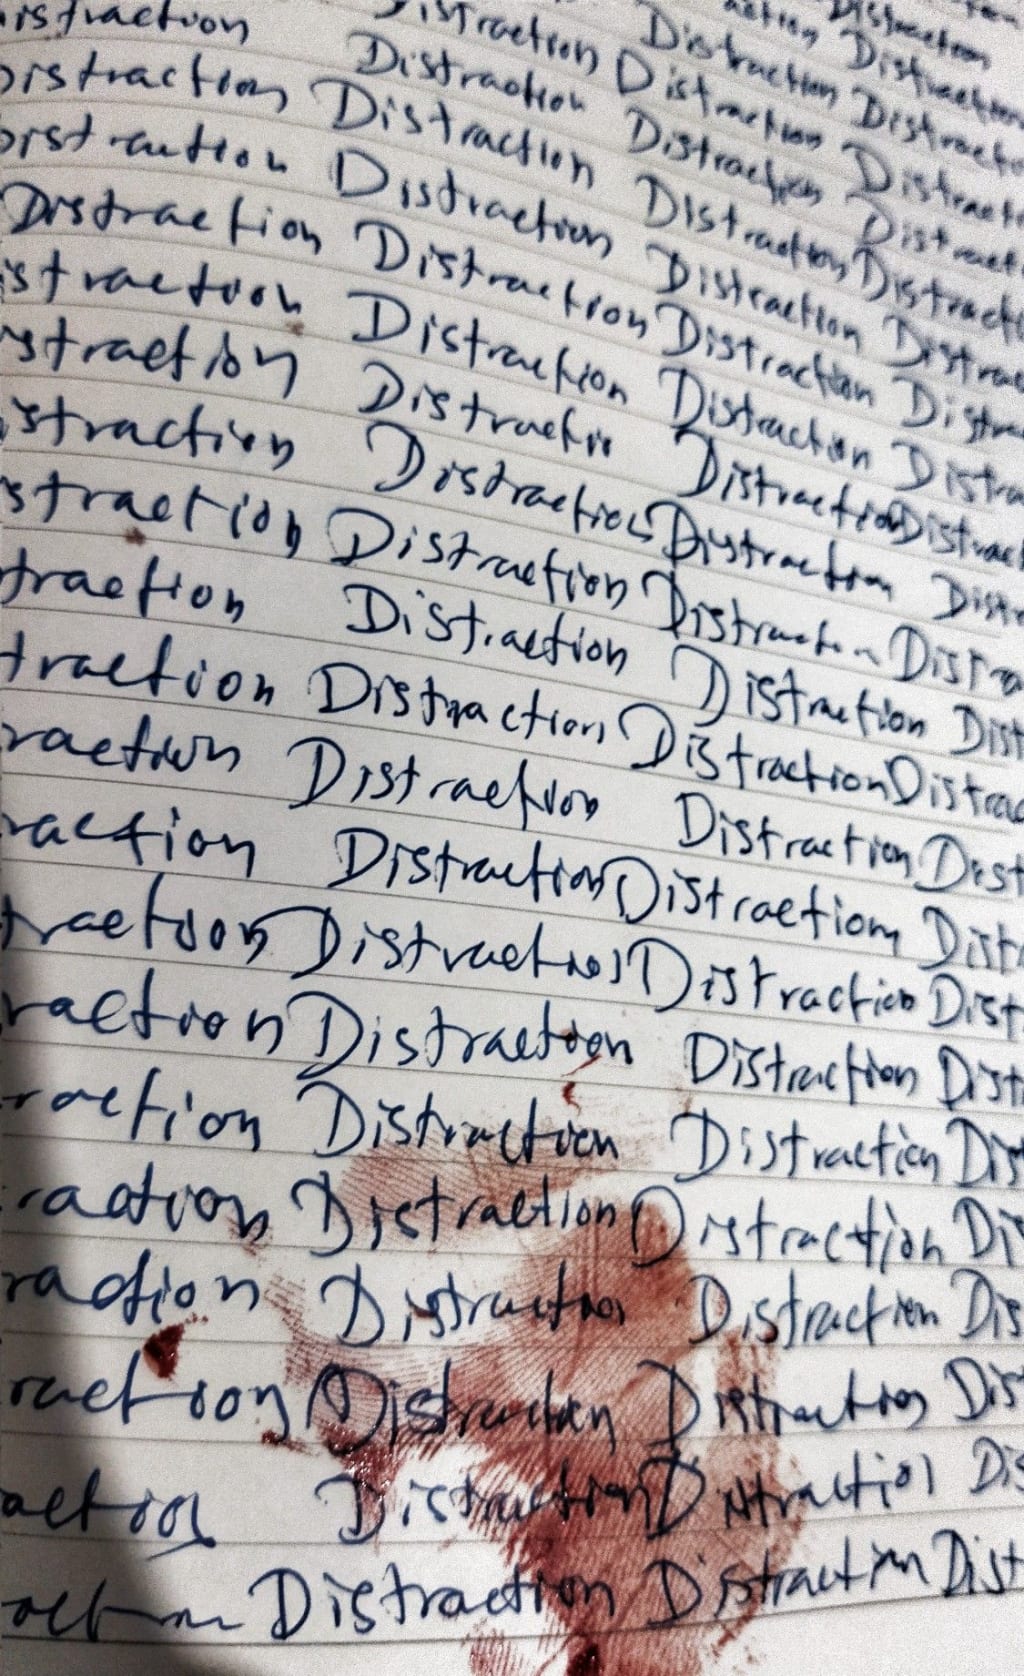 action Distraction
Distraction Distraction
istraction Distraction Distracti
istraction Distraction Distraction Distract
Distraction Distraction Distraction Distracti
Distraction Distraction Distraction Distracti
Distraction Distraction Distraction Distrac
istraction Distraction Distraction Distra
straction Distractio Distraction Distra
istraction Distraction Distraction Distract
straction Distraction Distraction Distr
traction Distraction Distraction Distra
traction Distraction Distraction Dist
raction Distraction Distraction Distrac
raction Distraction Distraction Dist
traction Distraction Distraction Distr
raction Distraction Distraction Dist
raction Distraction Distraction Dist
raction Distraction Distraction Dis
raction Distraction Distraction Di
raction Distraction Distraction Dis
action Distraction Distraction Dist
action Distraction Distraction Dis
Distraction Distraction Dist